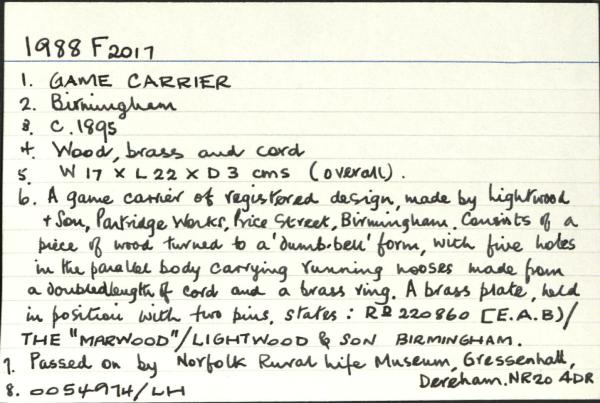 1988 F2017
1. GAME CARRIER
2. Birmingham
3. C.1895
4. Wood, brass and cord
5. W 17 X L 22 X D 3 cms (overall).
6. A game carrier of registered design, made by Lightwood
+ Son, Partridge Works, Price Street, Birmingham. Consists of a
piece of wood turned to a 'dumb-bell' form, with five holes
in the parallel body carrying running nooses made from
a doubled length of cord and a brass ring. A brass plate, held
in position with two pins, states: RD 220860 [E.A.B)/
THE "MARWOOD"/LIGHTWOOD & SON BIRMINGHAM.
7. Passed on by Norfolk Rural Life Museum, Gressenhall,
Dereham. NR20 4DR
8. 0054974/LH